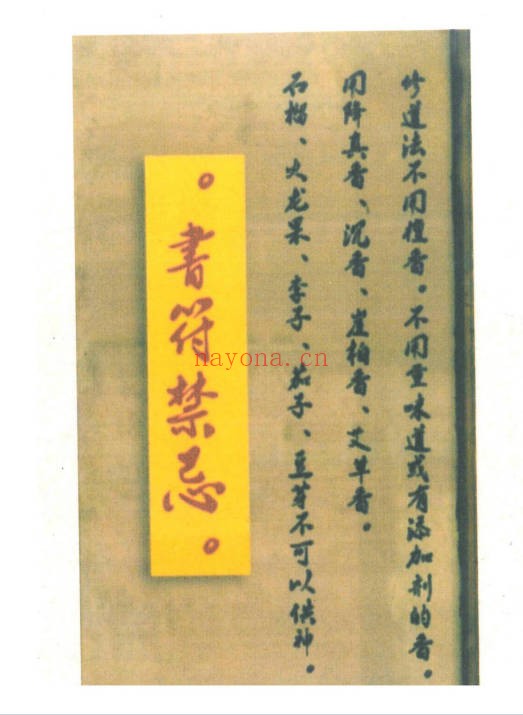 修道法不用檀香。不用重味道或有添加剂的香。
用降真香、沉香、崖柏香、艾草香。
石榴、火龙果、李子、茄子、豆芽不可以供神。
。書符禁忌。
nayona.cn